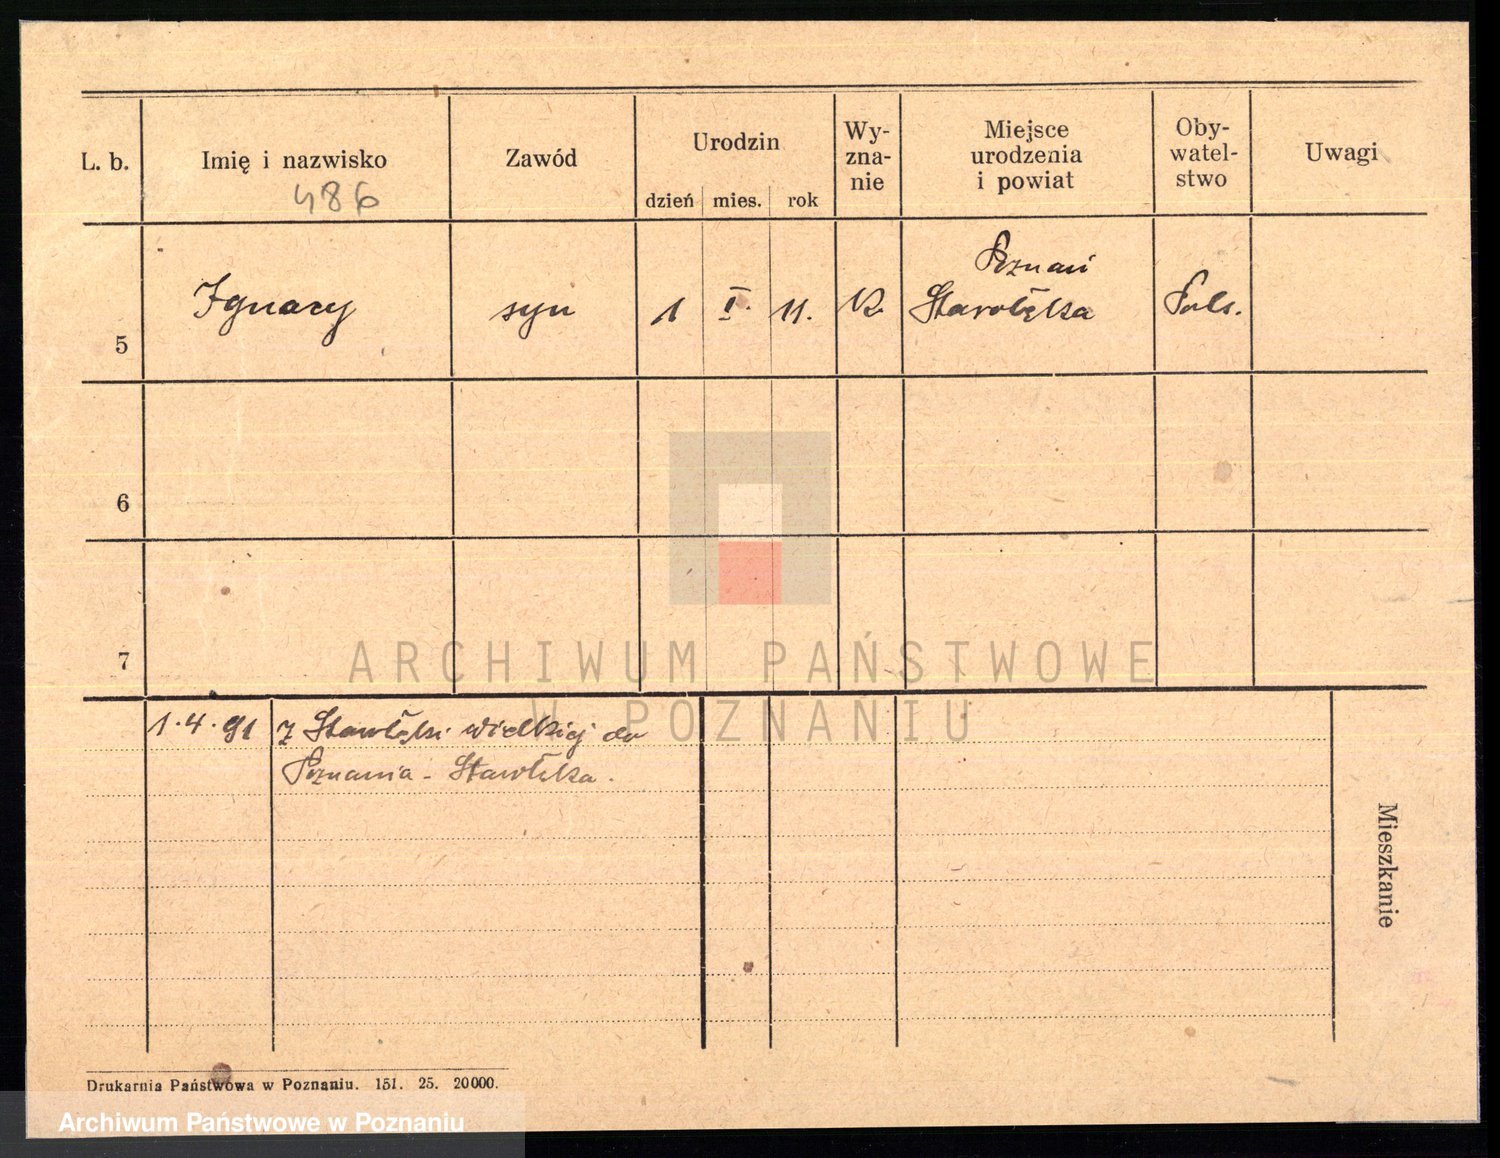 L. b.
Imię i nazwisko
486
Zawód
Urodzin
dzień mies. rok
Wy-
zna-
nie
Miejsce
urodzenia
i powiat
Oby-
watel-
stwo
Uwagi
5
Ignacy
syn
1
I.
11.
K.
Poznań
Starołęka
Pols.
6
7
ARCHIWUM PAŃSTWOWE
W POZNANIU
1.4.91
z wielkiej do
Poznania -
Mieszkanie
Drukarnia Państwowa w Poznaniu. 151. 25. 20000.
Archiwum Państwowe w Poznaniu